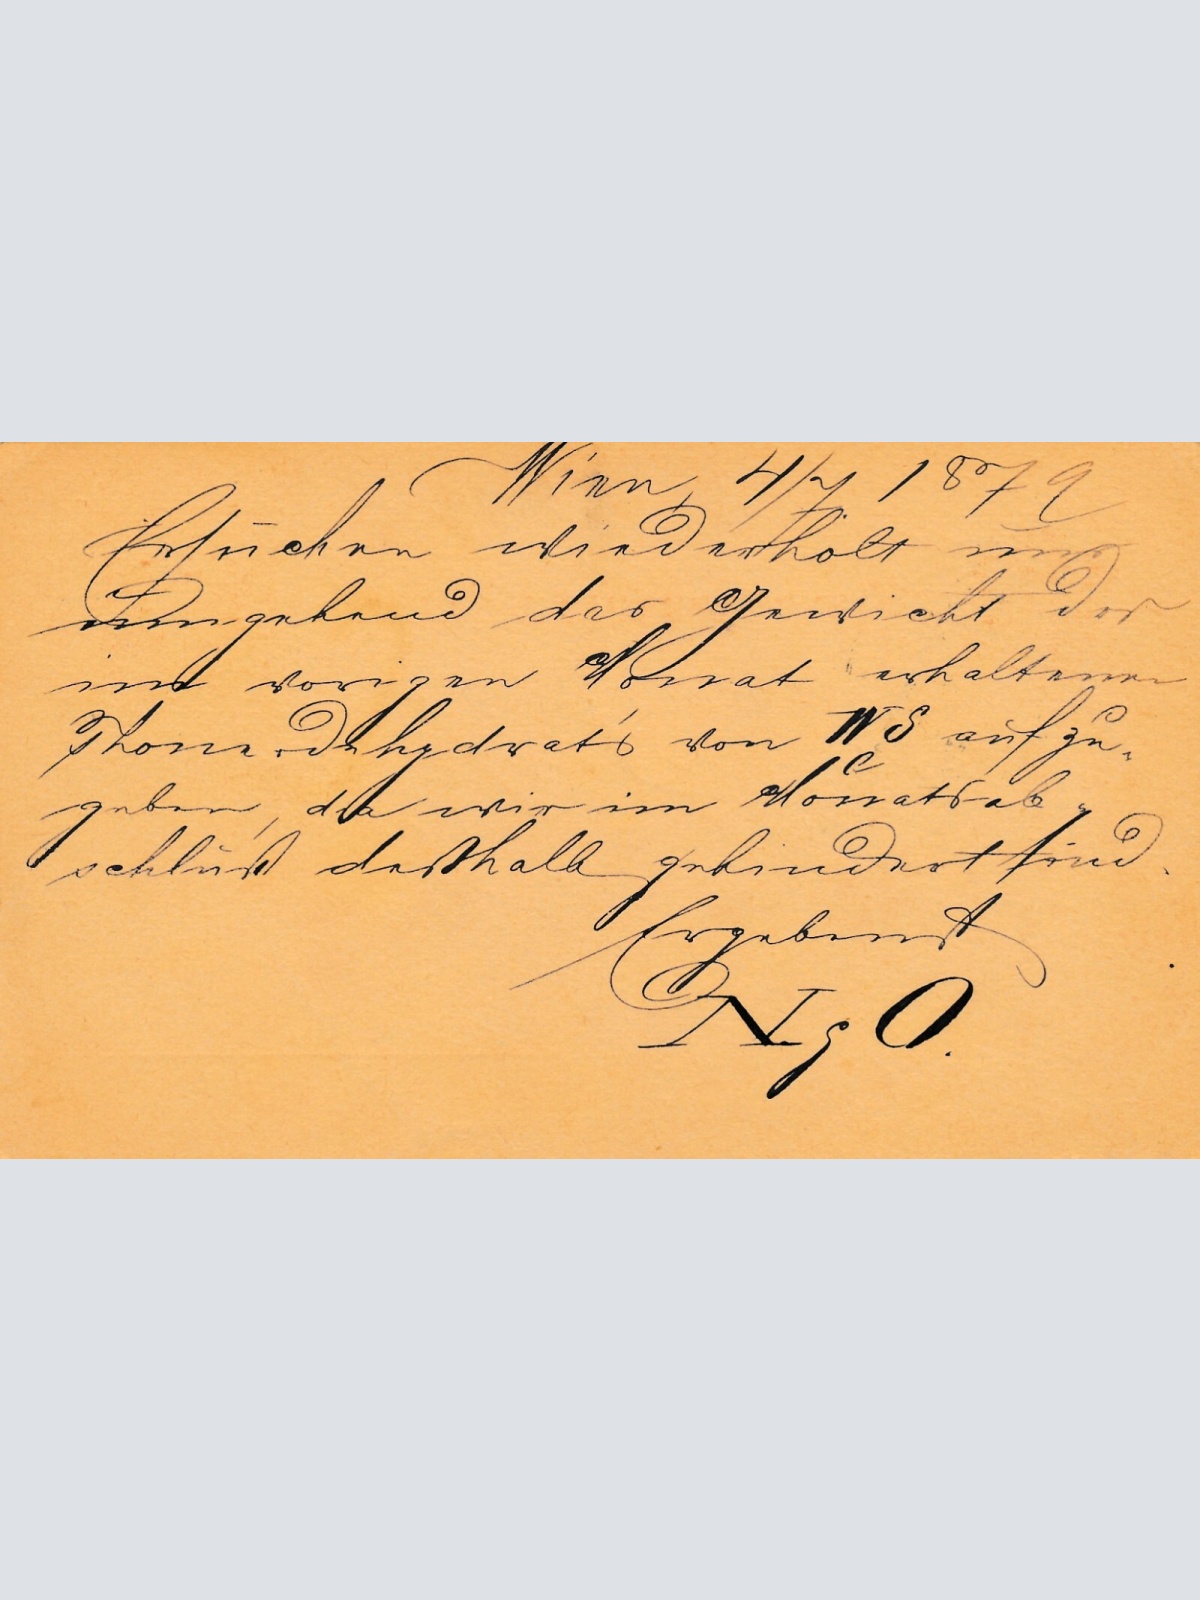 Wien, 4/7 1879
Ersuchen wiederholt uns
umgehend das Gewicht des
im vorigen Monat erhaltenen
Thonerdehydrat's von WS auf zu-
geben, da wir im Monatsab-
schluß deßhalb gehindert sind.
Ergebenst